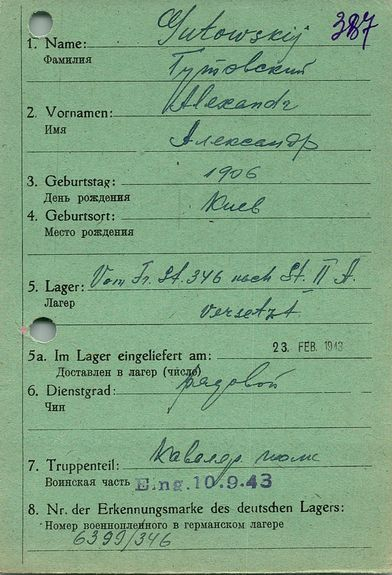 387
1. Name: Gutowskij
Фамилия Гутовский
2. Vornamen: Alexandr
Имя Александр
3. Geburtstag: 1906
День рождения
4. Geburtsort: Киев
Место рождения
5. Lager: Vom Fr. St. 346 nach St. II A.
Лагер versetzt
5a. Im Lager eingeliefert am: 23. FEB. 1943
Доставлен в лагер (число)
6. Dienstgrad: рядовой
Чин
7. Truppenteil: Кавалер полк
Воинская часть Eing. 10.9.43
8. Nr. der Erkennungsmarke des deutschen Lagers:
Номер военнопленного в германском лагере
6399/346